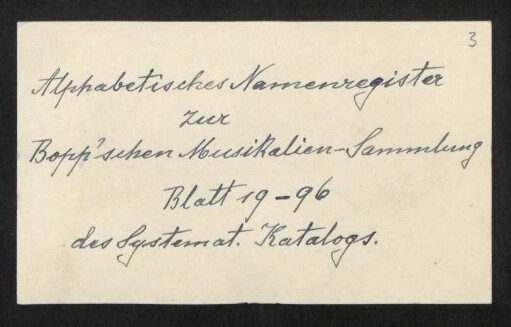 3
Alphabetisches Namenregister
zur
Bopp'schen Musikalien-Sammlung
Blatt 19-96
des Systemat. Katalogs.